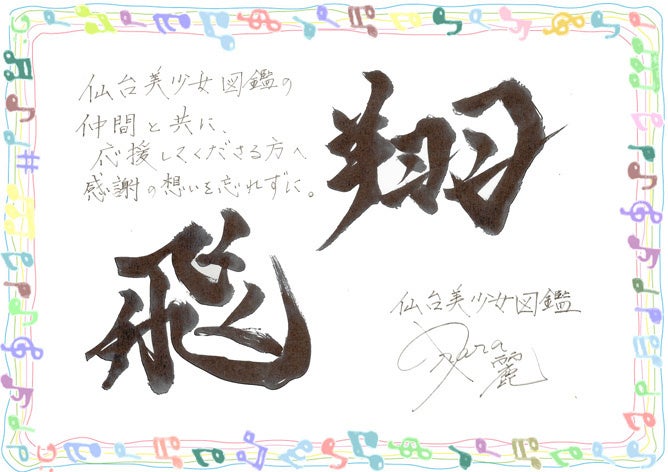 仙台美少女図鑑の
仲間と共に、
応援してくださる方へ
感謝の想いを忘れずに。
飛翔
仙台美少女図鑑
麗